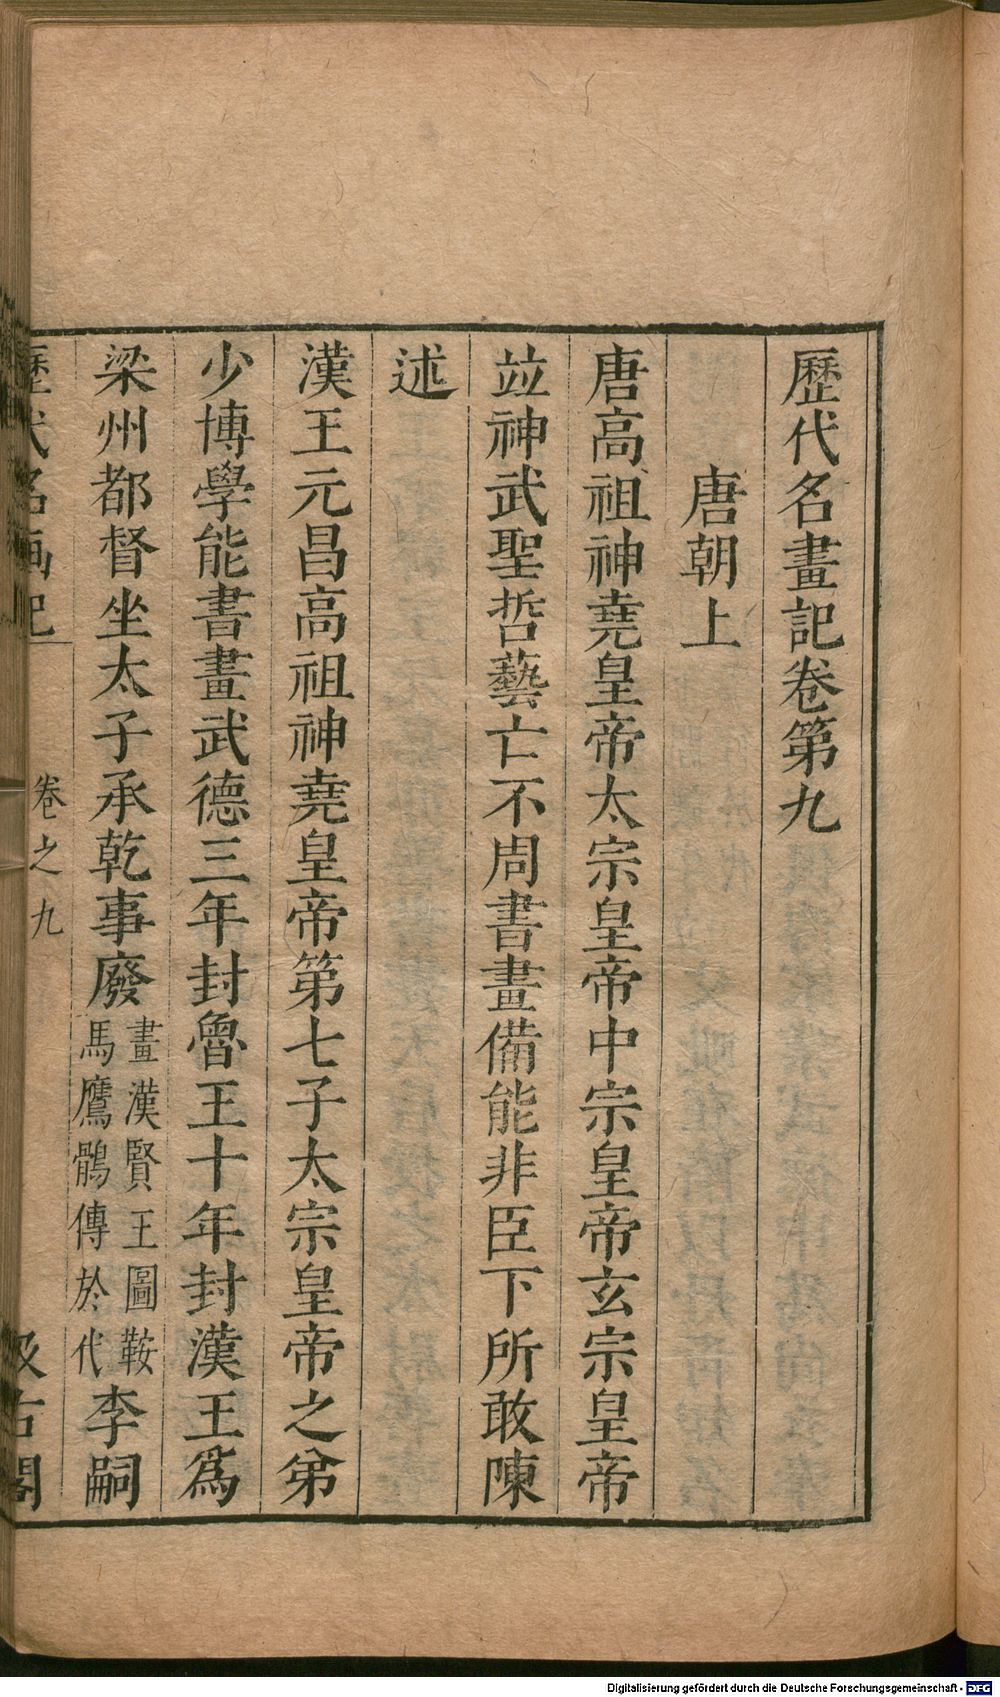 歷代名畫記卷第九
唐朝上
唐高祖神堯皇帝太宗皇帝中宗皇帝玄宗皇帝
竝神武聖哲藝亡不周書畫備能非臣下所敢陳
述
漢王元昌高祖神堯皇帝第七子太宗皇帝之弟
少博學能書畫武德三年封魯王十年封漢王爲
梁州都督坐太子承乾事廢畫漢賢王圖鞍馬鷹鶻傳於代李嗣
歷代名畫記 卷之九 汲古閣
Digitalisierung gefördert durch die Deutsche Forschungsgemeinschaft - DFG